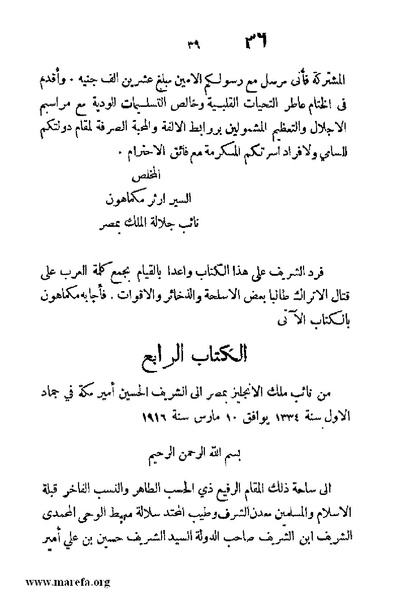 ٣٦ ٣٩
المشتركة فأنى مرسل مع رسولكم الامين مبلغ عشرين الف جنيه . وأقدم
فى الختام عاطر التحيات القلبية وخالص التسليمات الودية مع مراسيم
الاجلال والتعظيم المشمولين بروابط الالفة والمحبة الصرفة لمقام دولتكم
السامي ولافراد اسرتكم المكرمة مع فائق الاحترام .
المخلص
السير ارثر مكماهون
نائب جلالة الملك بمصر
فرد الشريف على هذا الكتاب واعدا بالقيام بجمع كلمة العرب على
قتال الاتراك طالبا بعض الاسلحة والذخائر والاقوات . فأجابه مكماهون
بالكتاب الآتى
الكتاب الرابع
من نائب ملك الانجليز بمصر الى الشريف الحسين أمير مكة في جماد
الاول سنة ١٣٣٤ يوافق ١٠ مارس سنة ١٩١٦
بسم الله الرحمن الرحيم
الى ساحة ذلك المقام الرفيع ذي الحسب الطاهر والنسب الفاخر قبلة
الاسلام والمسلمين معدن الشرف وطيب المحتد سلالة مهبط الوحى المحمدى
الشريف ابن الشريف صاحب الدولة السيد الشريف حسين بن علي أمير
www.marefa.org